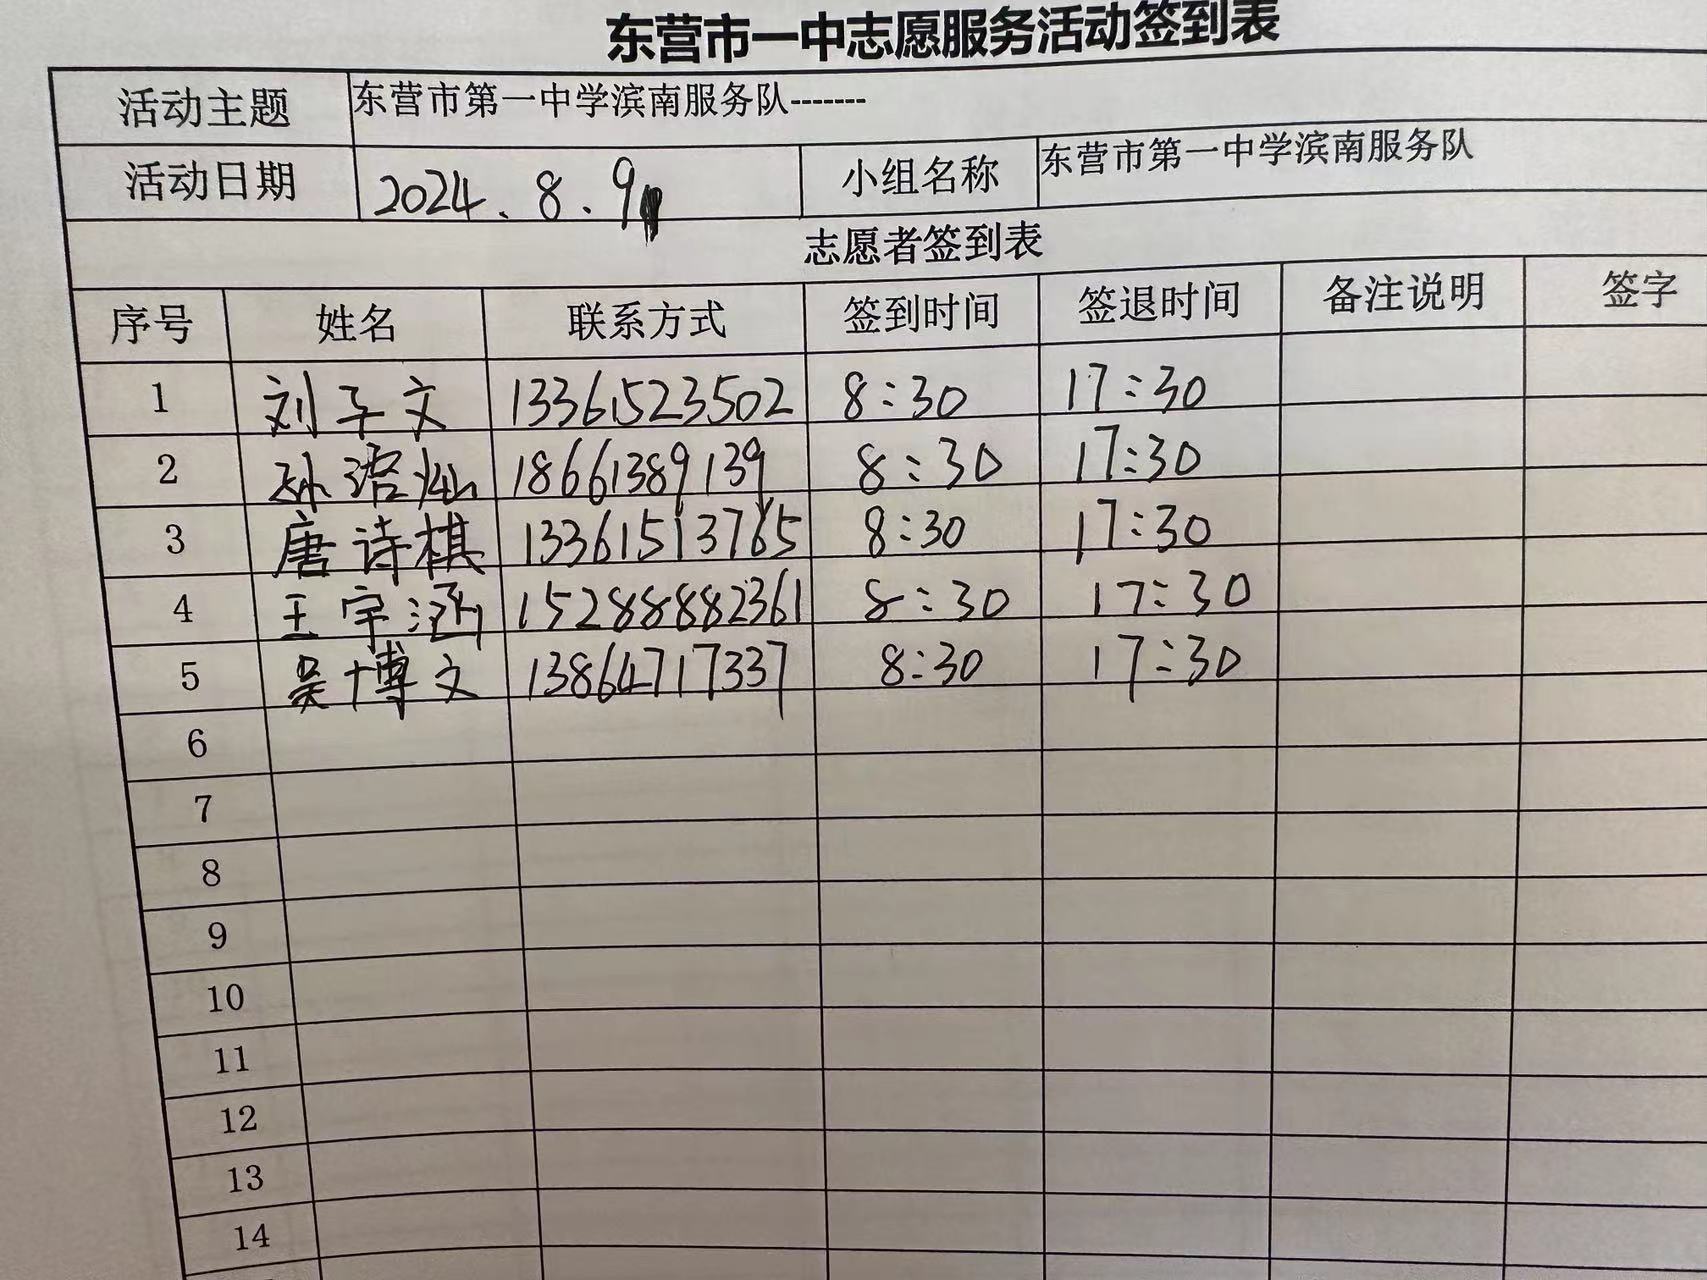 东营市一中志愿服务活动签到表
活动主题 东营市第一中学滨南服务队-------
活动日期 2024.8.9 小组名称 东营市第一中学滨南服务队
志愿者签到表
序号 姓名 联系方式 签到时间 签退时间 备注说明 签字
1 刘子文 13361523502 8:30 17:30
2 孙浴灿 18661389139 8:30 17:30
3 唐诗棋 13361513765 8:30 17:30
4 王宇涵 15288882361 8:30 17:30
5 吴博文 13864717337 8:30 17:30
6
7
8
9
10
11
12
13
14